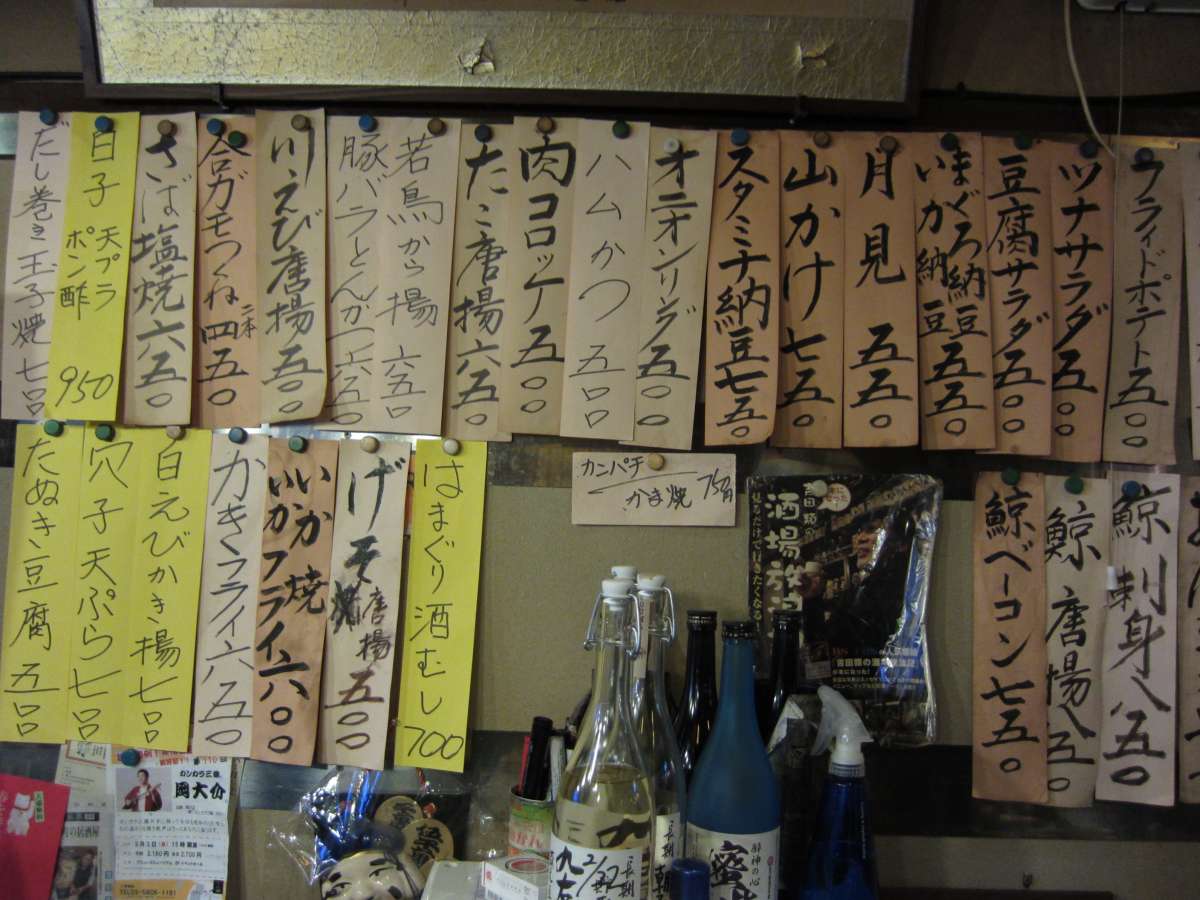 フライドポテト五〇〇
ツナサラダ五〇〇
豆腐サラダ五〇〇
まぐろ納豆
いか納豆 五五〇
月見 五五〇
山かけ 七五〇
スタミナ納豆七五〇
オニオンリング五〇〇
ハムかつ 五〇〇
肉コロッケ五〇〇
たこ唐揚六五〇
若鳥から揚 六五〇
豚バラとんかつ六五〇
川えび唐揚五〇〇
合ガモつくね二本四五〇
さば塩焼六五〇
白子 天プラ
ポン酢 950
だし巻き玉子焼 七〇〇
鯨刺身八五〇
鯨 唐揚八五〇
鯨ベーコン七五〇
カンパチ
かま焼 750円
はまぐり酒むし700
げそ 唐揚 五〇〇
いか焼
いかフライ六〇〇
かきフライ六五〇
白えびかき揚七〇〇
穴子天ぷら七〇〇
たぬき豆腐 五〇〇
吉田類の
酒場放浪記
岡大介